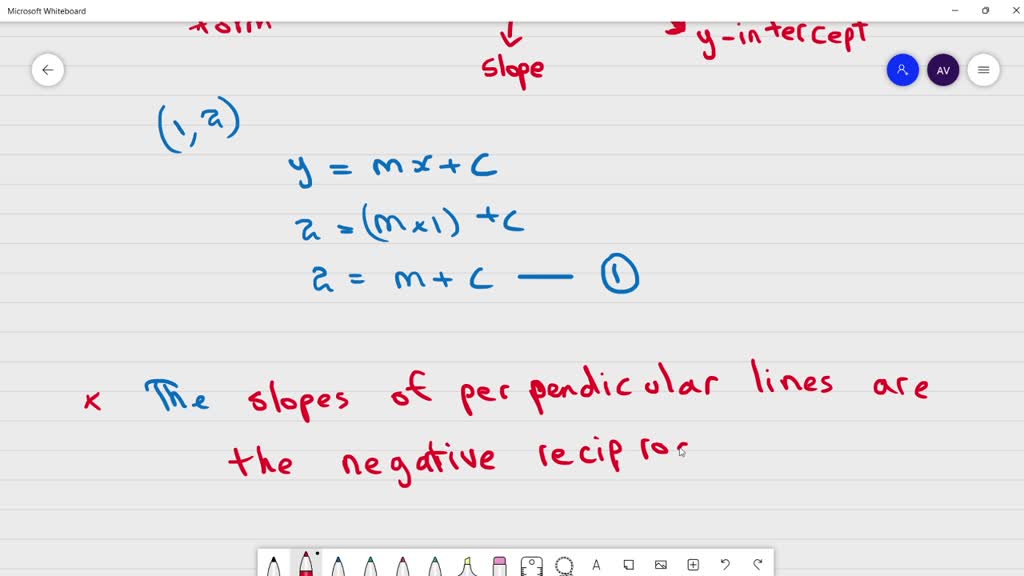 Microsoft Whiteboard
form
slope
y-intercept
AV
(1, 2)
y = mx + c
2 = (m×1) + c
2 = m + c — ①
× The slopes of perpendicular lines are
the negative reciproc
A